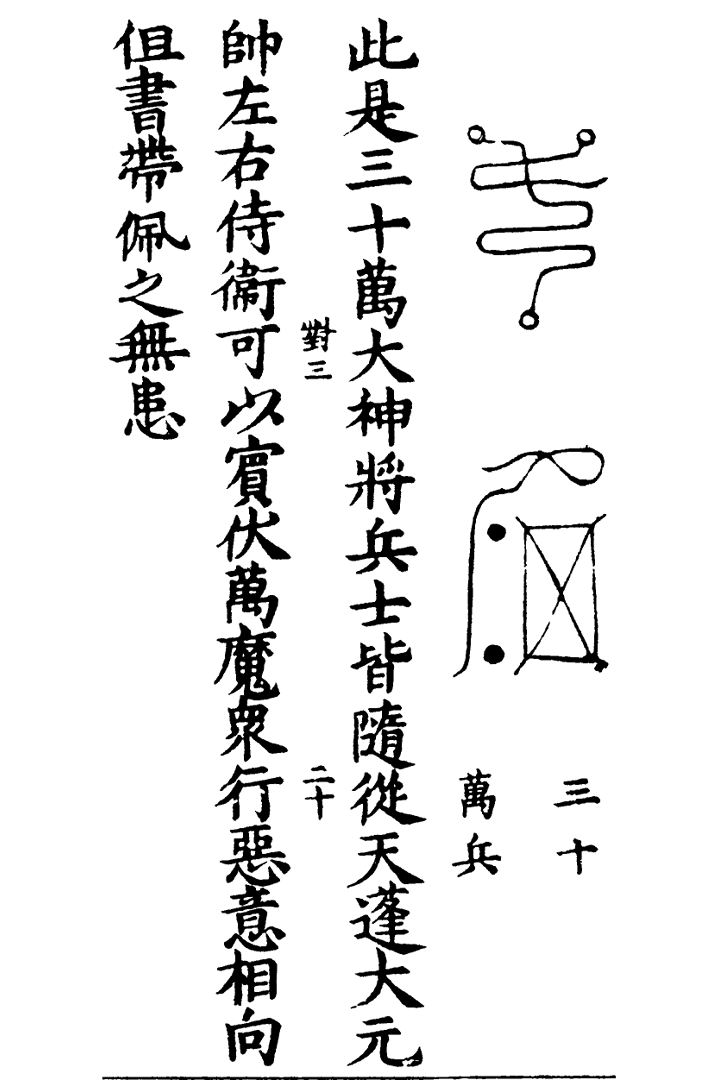 三十
萬兵
此是三十萬大神將兵士皆隨從天蓬大元
對三
二十
帥左右侍衞可以賓伏萬魔衆行惡意相向
但書帶佩之無患